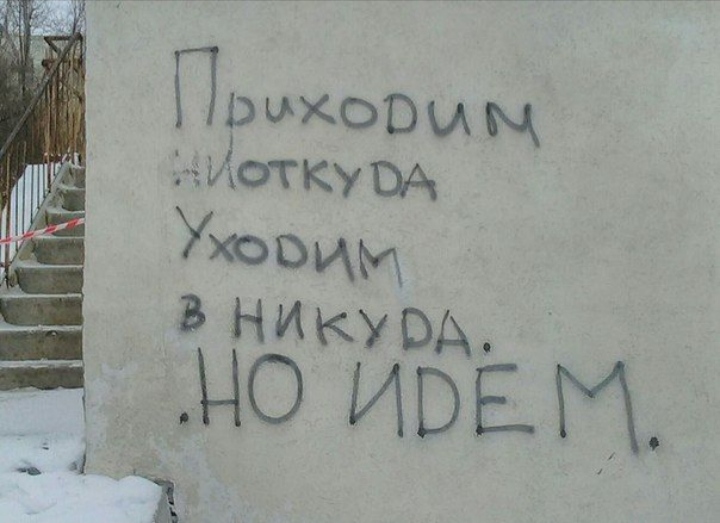 Приходим
ниоткуда
Уходим
в никуда.
.НО ИDЕМ.